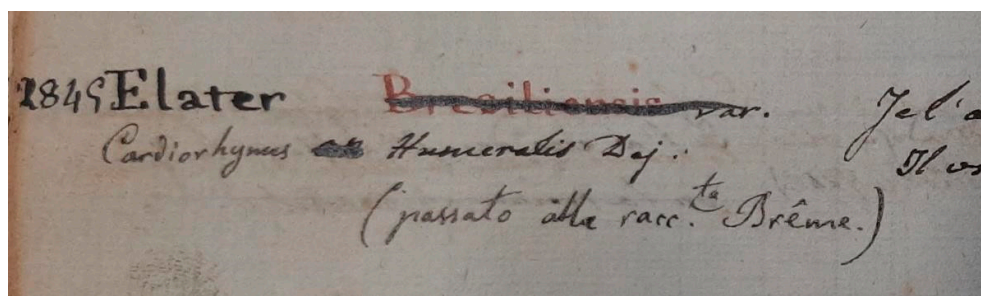 1845 Elater Bresiliensis var. Je l'a
Cardiorhynus Humeralis Dej. Il
(passato alla racc.ta Brême.)